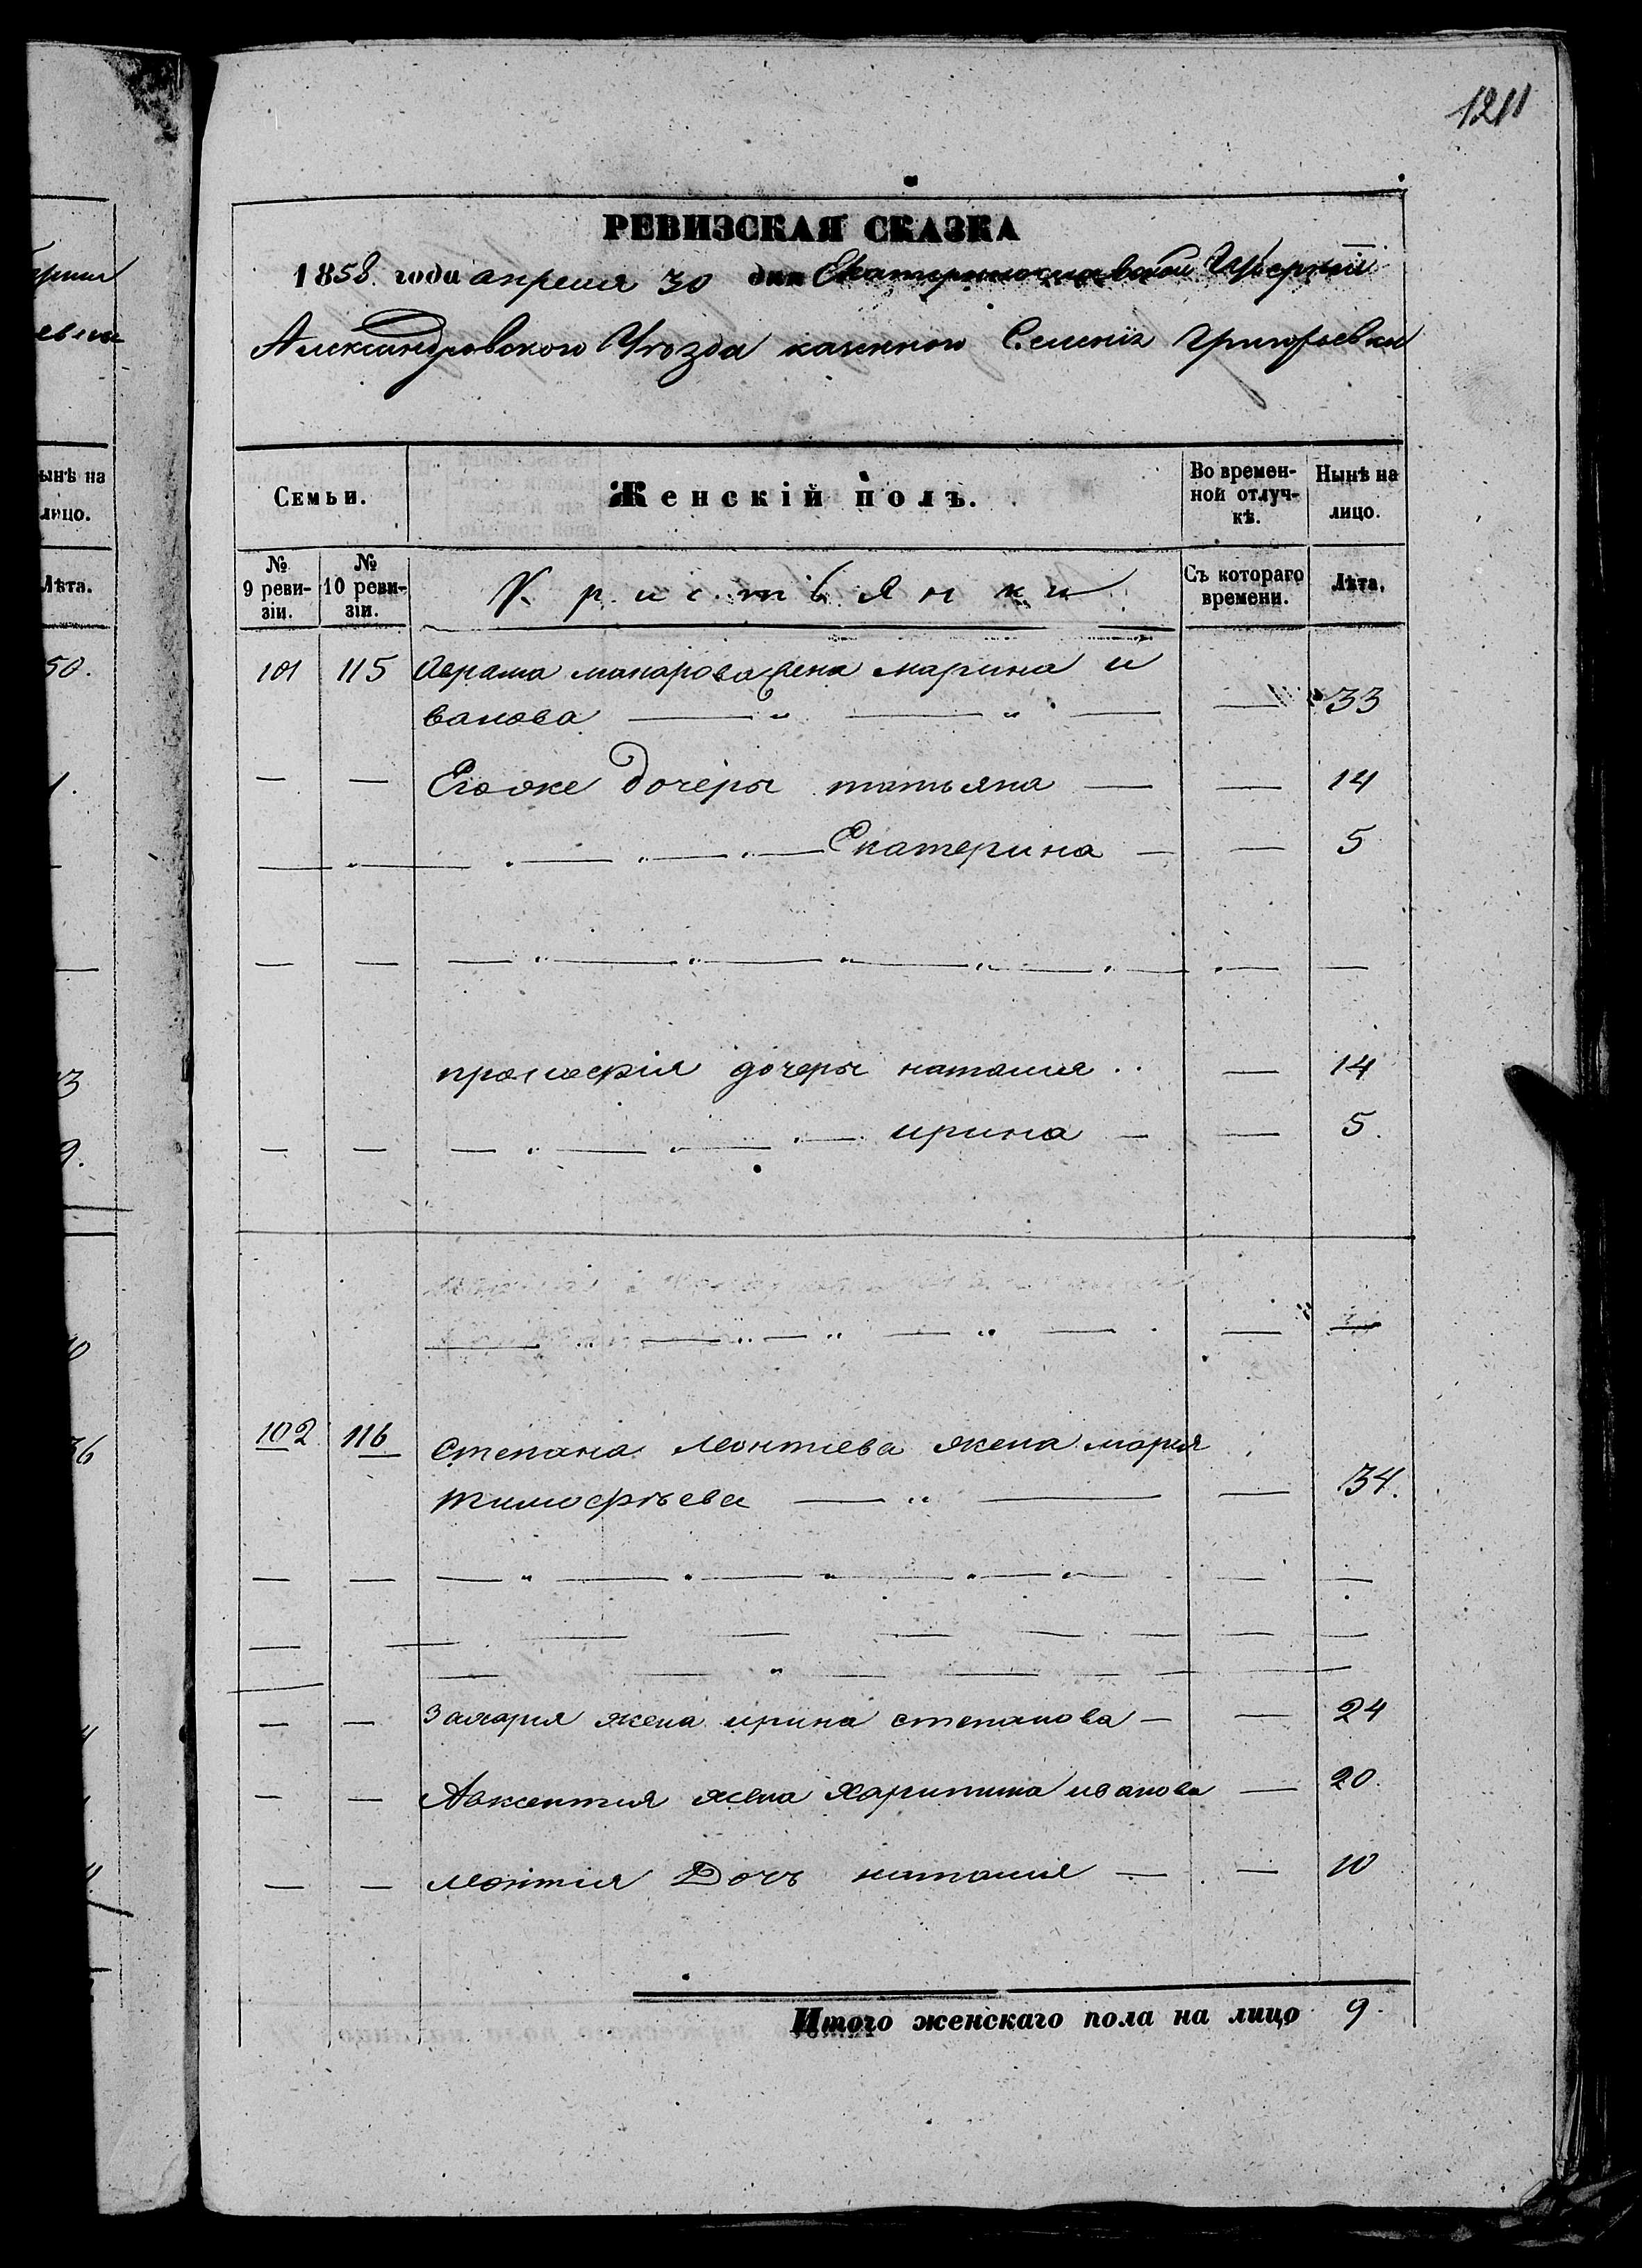 1211
РЕВИЗСКАЯ СКАЗКА
1858. года апреля 30 дня Екатеринославской Губерніи
Александровского Уѣзда казенного Селенія Григорьевки
Семьи.
Женскій полъ.
Во времен-
ной отлуч-
кѣ.
Нынѣ на
лицо.
№ 9 реви-
зіи.
№ 10 реви-
зіи.
Кристьянки
Съ котораго
времени.
Лѣта.
101 115 Аврама макарова жена марина и
ванова — „ — „ — — 33
— — Егоже дочеры татьяна — — 14
— „ — „ — „ — „ — Екатерина — — 5
— — — „ — „ — „ — „ — „ — „ — —
дочеры наталия — 14
— — — „ — „ — „ — ирина — — 5.
102 116 Степана леонтиева жена мария
тимофѣева — „ — — 34.
— — — „ — „ — „ — „ — „ — — —
— — захария жена ирина степанова — — 24
— — Авксентия жена Харитина иванова — 20.
— — леонтия Дочь наталия — — 10
Итого женскаго пола на лицо 9.
ынѣ на
лицо.
Лѣта.
50.